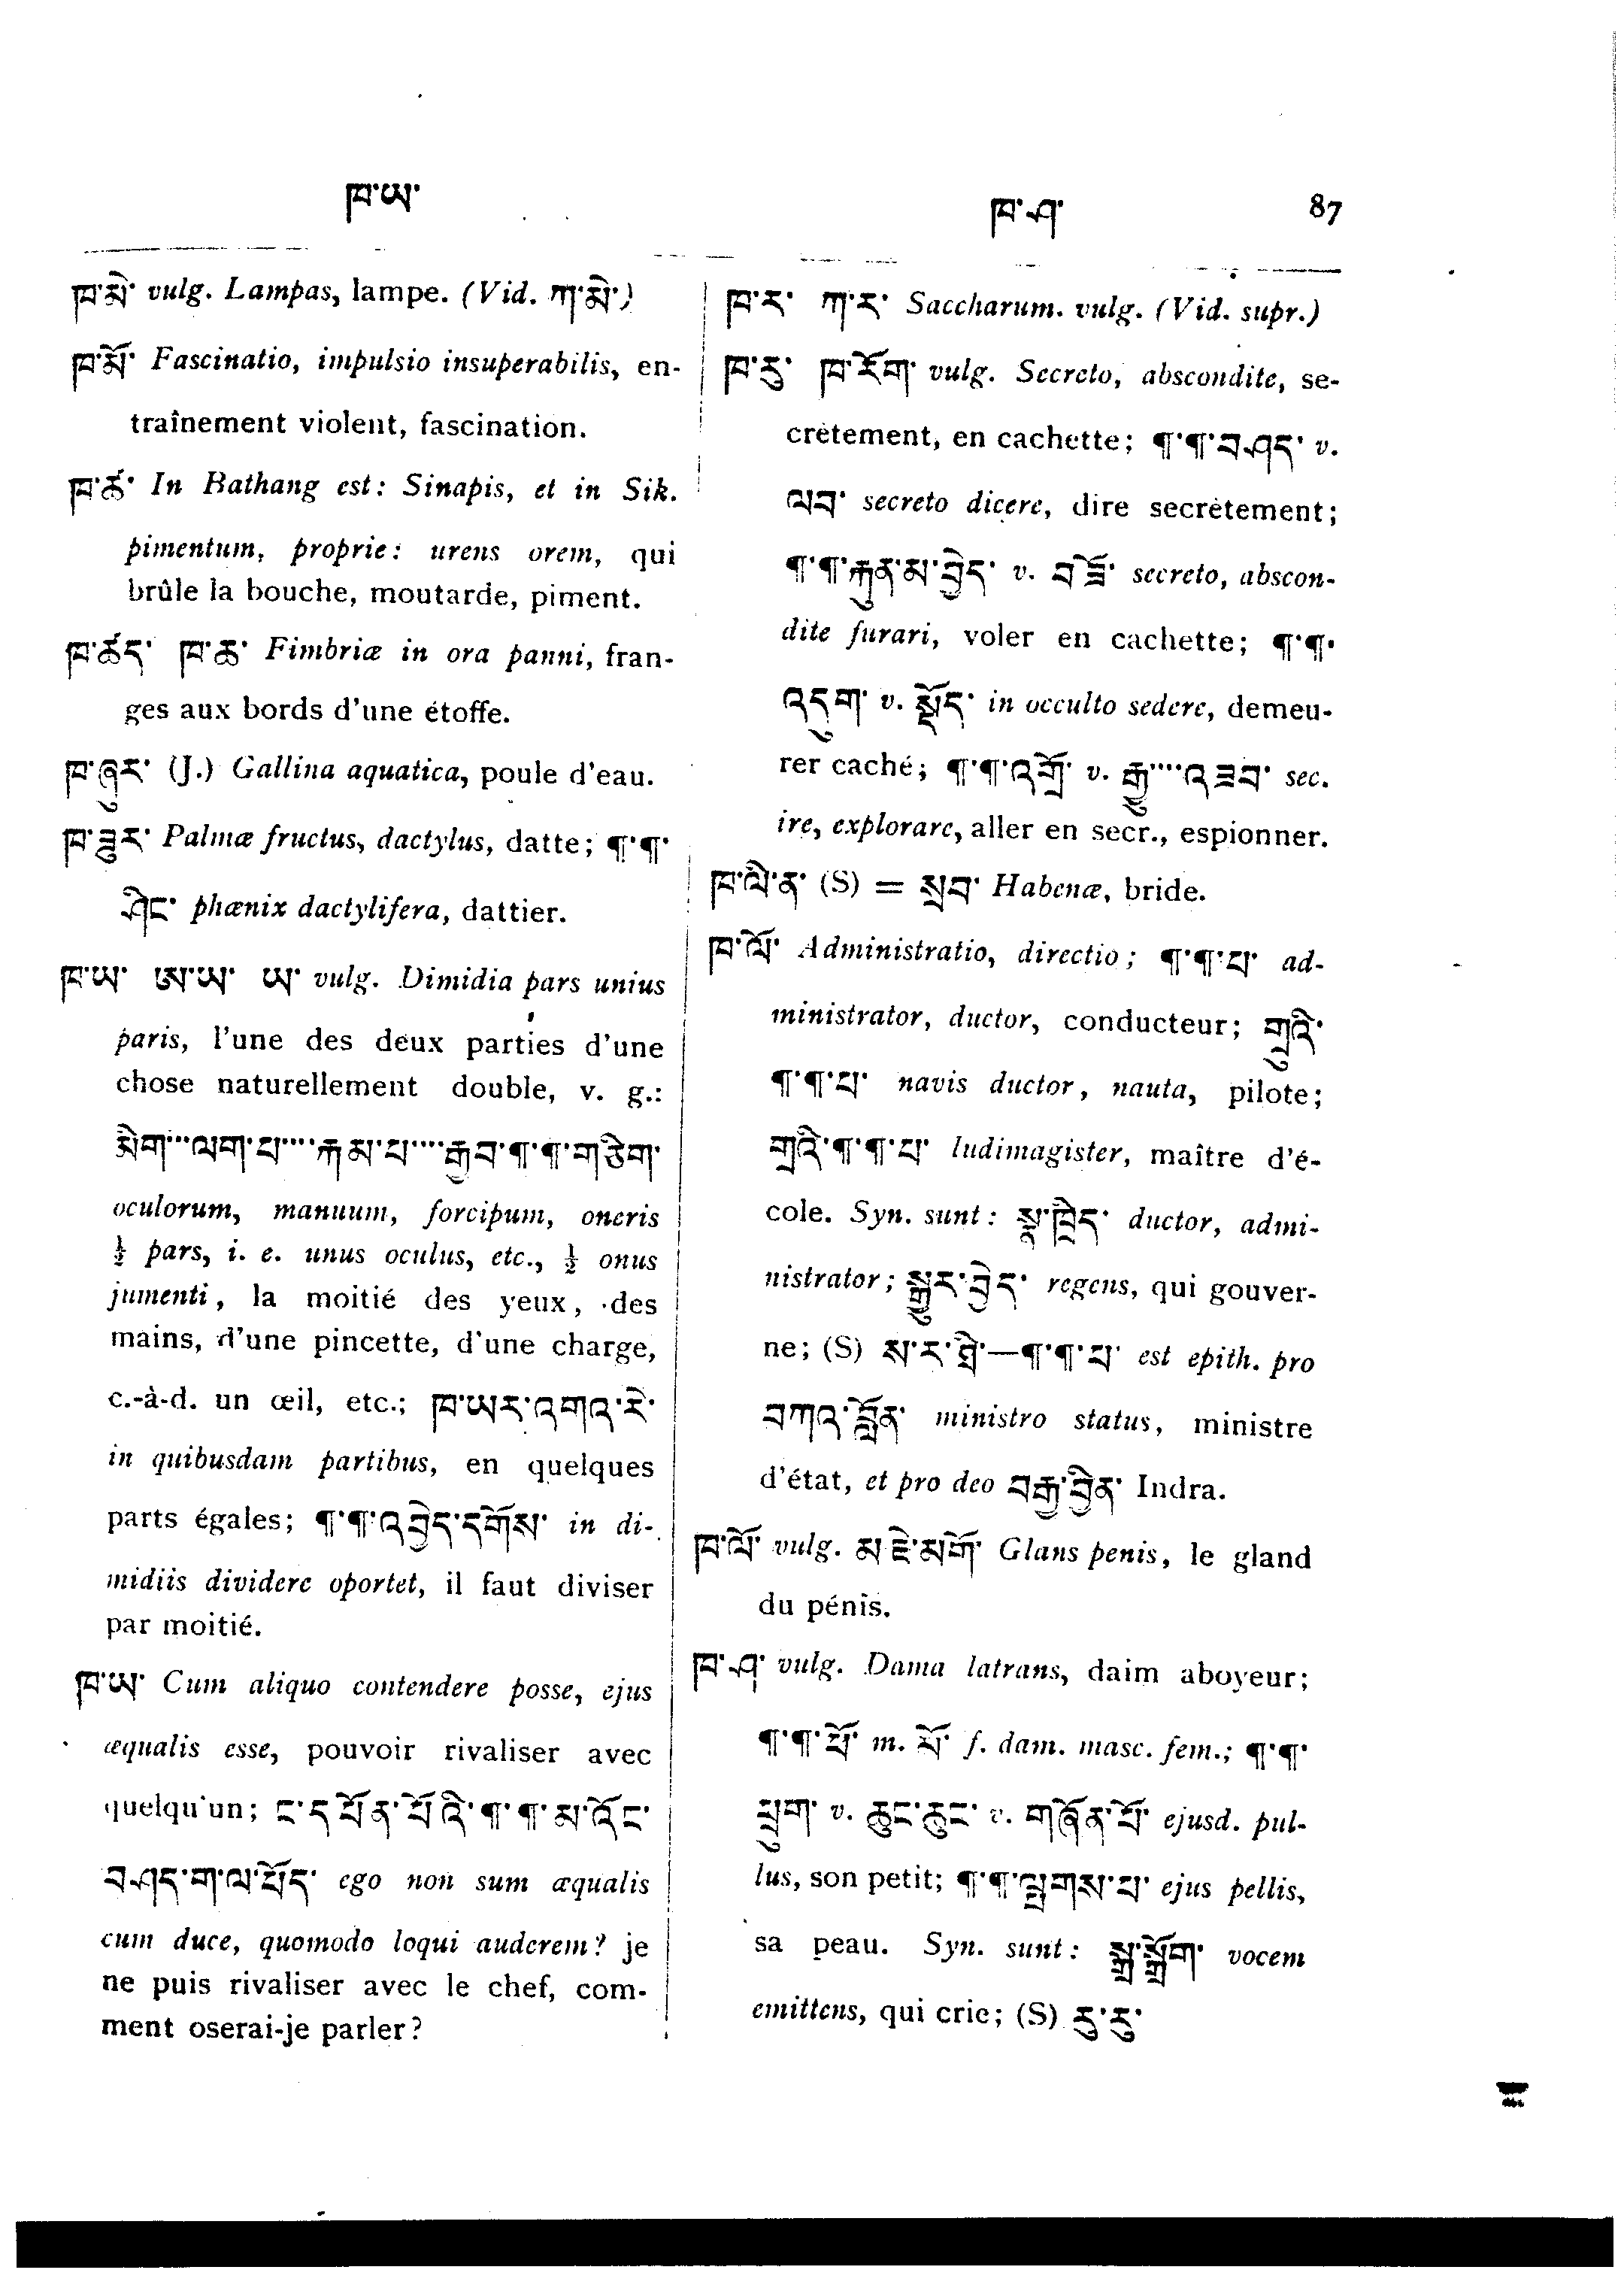 ཁ་ཡ་
ཁ་ཤ་ 87
ཁ་མེ་ vulg. Lampas, lampe. (Vid. ཀ་མེ་)
ཁ་མོ་ Fascinatio, impulsio insuperabilis, en-
traînement violent, fascination.
ཁ་ཚ་ In Bathang est: Sinapis, et in Sik.
pimentum, proprie: urens orem, qui
brûle la bouche, moutarde, piment.
ཁ་ཚད་ ཁ་ཆ་ Fimbriæ in ora panni, fran-
ges aux bords d'une étoffe.
ཁ་ཞུར་ (J.) Gallina aquatica, poule d'eau.
ཁ་ཟུར་ Palmæ fructus, dactylus, datte; ༎་༎་
ཤིང་ phœnix dactylifera, dattier.
ཁ་ཡ་ ཨ་ཡ་ ཡ་ vulg. Dimidia pars unius
paris, l'une des deux parties d'une
chose naturellement double, v. g.:
མིག་···ལག་པ་···རྐམ་པ་···རྒྱབ་༎་༎་གཅིག་
oculorum, manuum, forcipum, oneris
½ pars, i. e. unus oculus, etc., ½ onus
jumenti, la moitié des yeux, des
mains, d'une pincette, d'une charge,
c.-à-d. un œil, etc.; ཁ་ཡར་འགའ་རེ་
in quibusdam partibus, en quelques
parts égales; ༎་༎་འབྱེད་དགོས་ in di-
midiis dividere oportet, il faut diviser
par moitié.
ཁ་ཡ་ Cum aliquo contendere posse, ejus
æqualis esse, pouvoir rivaliser avec
quelqu'un; ང་དཔོན་པོའི་༎་༎་མ་འོང་
བཤད་ག་ལ་པོད་ ego non sum æqualis
cum duce, quomodo loqui auderem? je
ne puis rivaliser avec le chef, com-
ment oserai-je parler?
ཁ་ར་ ཀ་ར་ Saccharum. vulg. (Vid. supr.)
ཁ་རུ་ ཁ་རོག་ vulg. Secreto, abscondite, se-
crètement, en cachette; ༎་༎་བཤད་ v.
ལབ་ secreto dicere, dire secrètement;
༎་༎་རྐུན་མ་བྱེད་ v. བཟོ་ secreto, abscon-
dite furari, voler en cachette; ༎་༎་
འདུག་ v. སྡོད་ in occulto sedere, demeu-
rer caché; ༎་༎་འགྲོ་ v. རྒྱུ་···འཟབ་ sec.
ire, explorare, aller en secr., espionner.
ཁ་ལི་ན་ (S) = སྲབ་ Habenæ, bride.
ཁ་ལོ་ Administratio, directio; ༎་༎་པ་ ad-
ministrator, ductor, conducteur; གྲུའི་
༎་༎་པ་ navis ductor, nauta, pilote;
གྲྭའི་༎་༎་པ་ ludimagister, maître d'é-
cole. Syn. sunt: སྣ་ཁྲིད་ ductor, admi-
nistrator; སྒྱུར་བྱེད་ regens, qui gouver-
ne; (S) ས་ར་ཐི་—༎་༎་པ་ est epith. pro
བཀའ་བློན་ ministro status, ministre
d'état, et pro deo བརྒྱ་བྱིན་ Indra.
ཁ་ལོ་ vulg. མཇེ་མགོ་ Glans penis, le gland
du pénis.
ཁ་ཤ་ vulg. Dama latrans, daim aboyeur;
༎་༎་ཕོ་ m. མོ་ f. dam. masc. fem.; ༎་༎་
ཕྲུག་ v. ཆུང་ཆུང་ v. གཞོན་པོ་ ejusd. pul-
lus, son petit; ༎་༎་ལྤགས་པ་ ejus pellis,
sa peau. Syn. sunt: སྒྲ་སྒྲོག་ vocem
emittens, qui crie; (S) རུ་རུ་